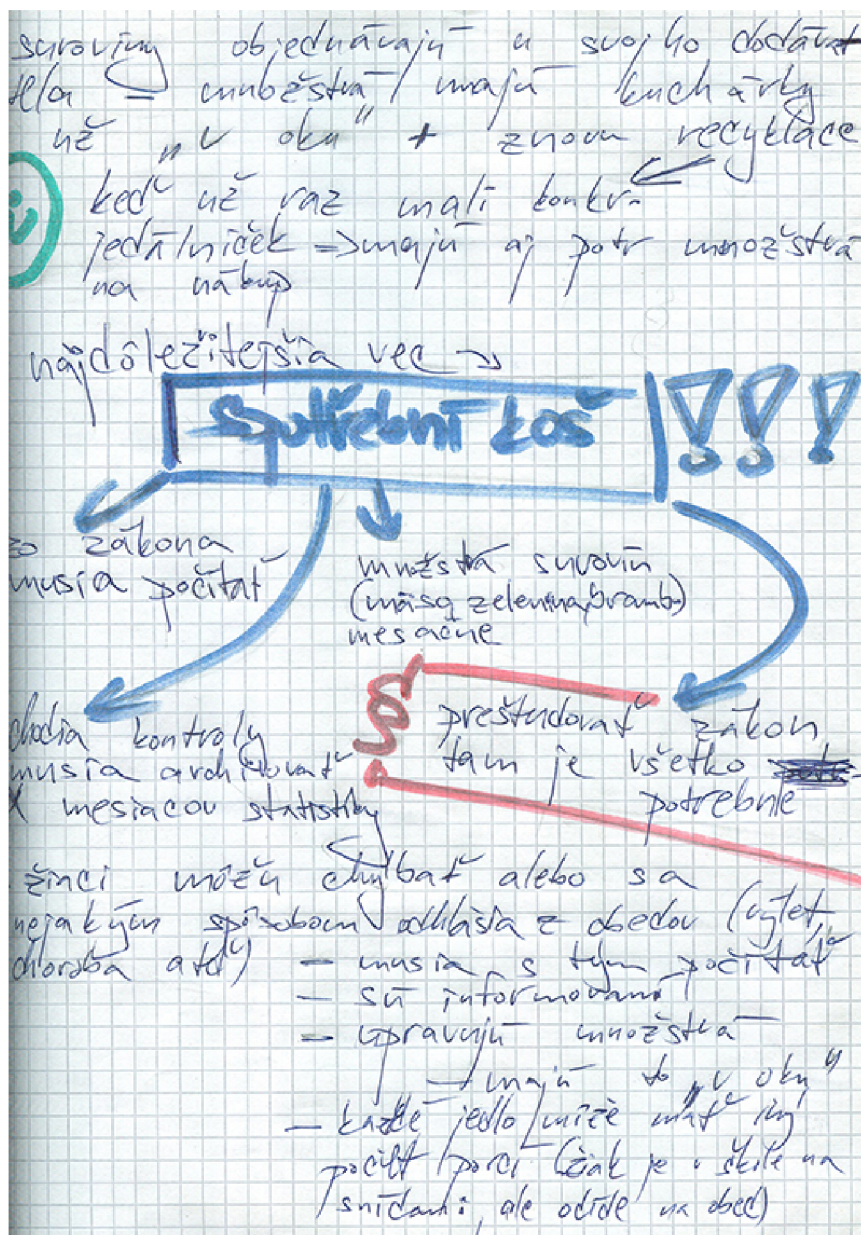 suroviny objednávajú u svojho dodávat
tela – množstvá majú kuchárky
už „v oku" + znovu recyklace
keď už raz mali konkr.
jedálníček => majú aj potr množstvá
na nákup
najdôležitejšia vec →
spotřební koš !!!
zo zákona
musia počítať
množstvá surovín
(mäso, zelenina, bramb.)
mesačne
chodia kontroly
musia archivovať
X mesiacov statistiky
§ preštudovať zákon,
tam je všetko
potrebné
žiaci môžu chýbať alebo sa
nejakým spôsobom odhlásia z obedov (výlet,
choroba atď)
– musia s tým počítať
– sú informovaní
– upravujú množstvá
→ majú to „v oku"
– každé jedlo môže mať iný
počet porcí (žiak je v škole na
snídani, ale odíde na obed)